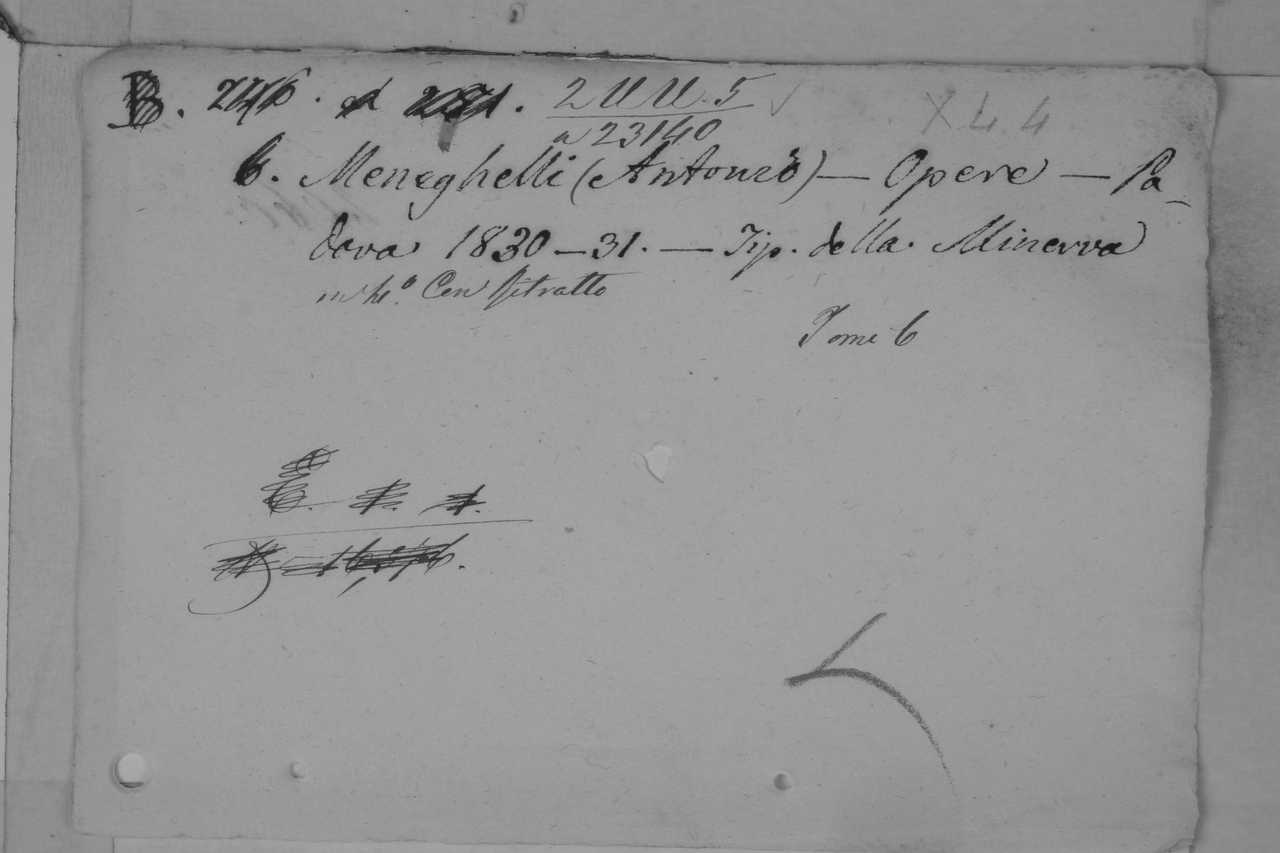 B. 246. 2 U U. 5 X 4 4
a 23140
6. Meneghelli (Antonio) — Opere — Pa-
dova 1830-31. — Tip. della Minerva
in 4.º Con Ritratto
Tomi 6